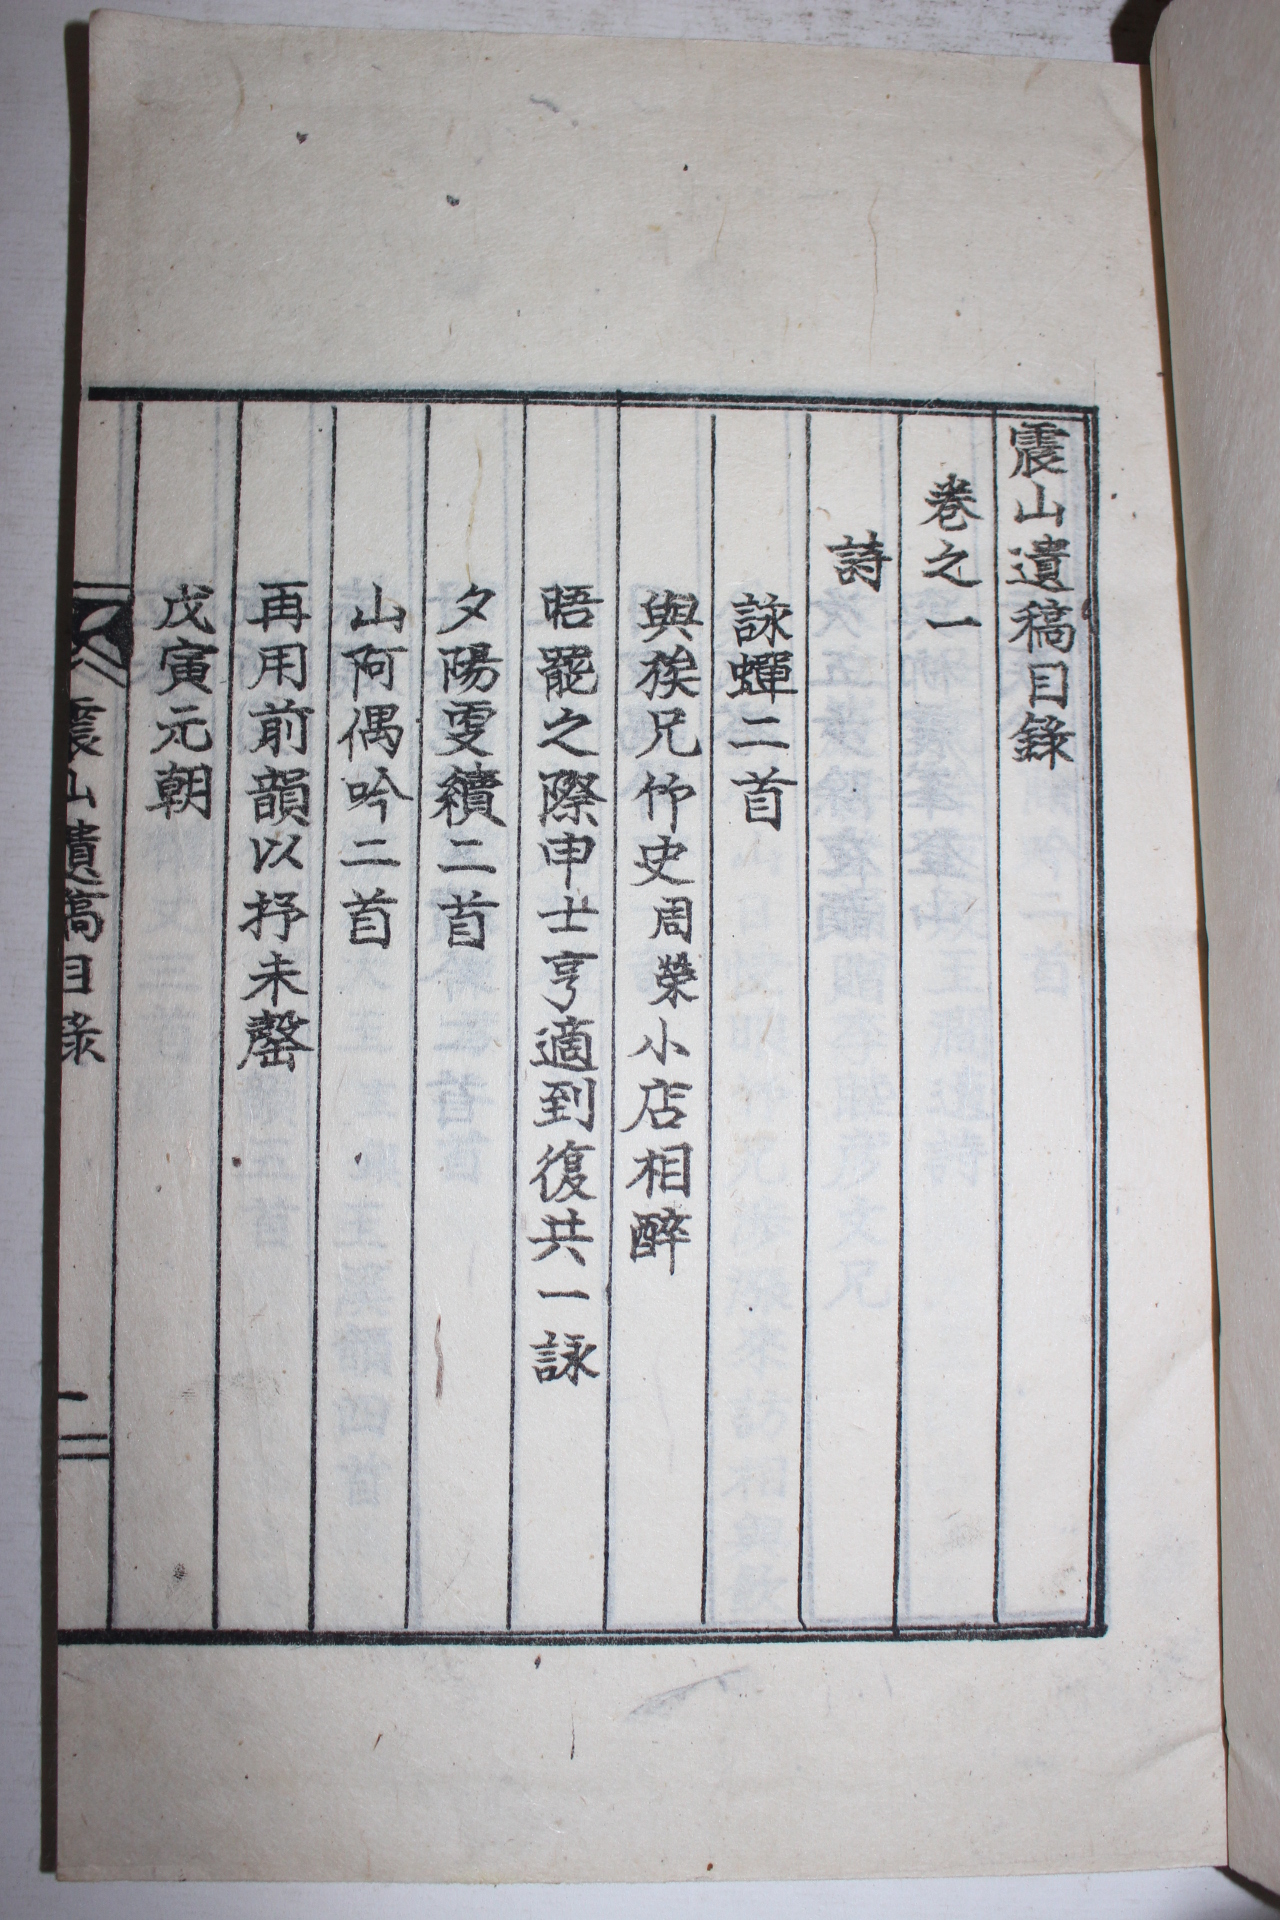 震山遺稿目錄
卷之一
詩
詠蟬二首
與族兄竹史周榮小店相醉
晤罷之際申士亨適到復共一詠
夕陽更續二首
山阿偶吟二首
再用前韻以抒未罄
戊寅元朝
震山遺稿目錄
一